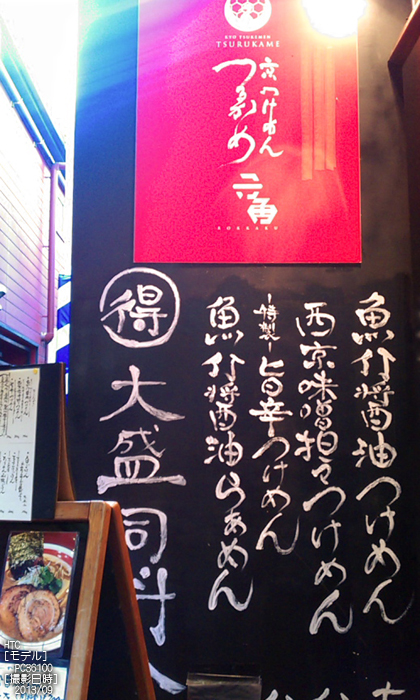 KYO TSUKEMEN
TSURUKAME
京つけめん
つるかめ
六角
ROKKAKU
魚介醤油つけめん
西京味噌担々つけめん
-特製-旨辛つけめん
魚介醤油らぁめん
得 大盛同料
HTC
[モデル]
PC36100
[撮影日時]
2013/09